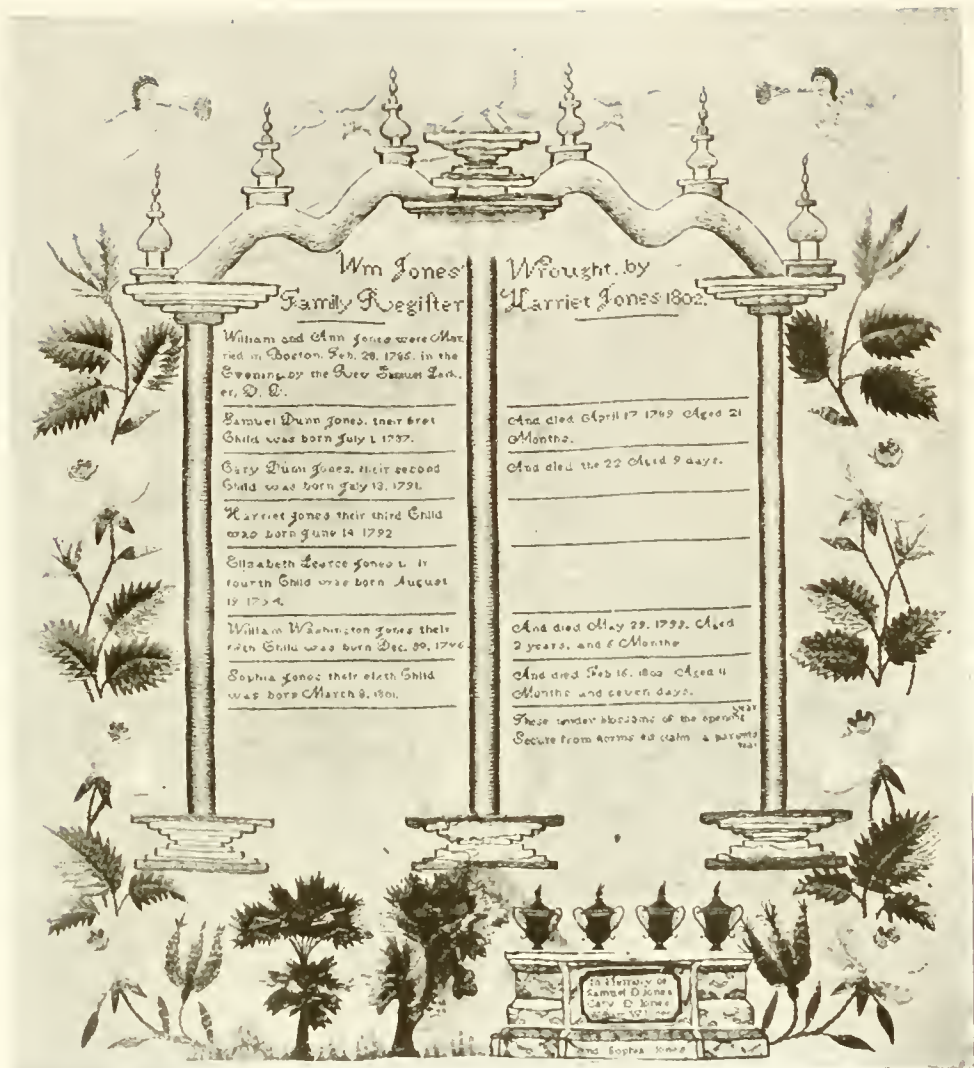 Wm Jones
Family Regifter
William and Ann Jones were Mar
ried in Boston, Feb. 28, 1785, in the
Evening, by the Rev Samuel
er, D. D.
Samuel Dunn Jones, their first
Child was born July 1, 1787.
Cary Dunn Jones, their second
Child was born July 13, 1791.
Harriet Jones their third Child
was born June 14 1792
Elizabeth Jones
fourth Child was born August
19
William Washington Jones their
fifth Child was born Dec.
Sophia Jones their sixth Child
was born March 8, 1801.
Wrought by
Harriet Jones 1802.
And died April 17 1789 Aged 21
Months.
And died the 22 Aged 9 days.
And died May 29, 1799. Aged
2 years, and 5 Months
And died Feb 16, 1802 Aged 11
Months and seven days.
These tender blossoms of the opening
year
Secure from a parents
In Memory of
Samuel D Jones
Cary D Jones
William W Jones
and Sophia Jones